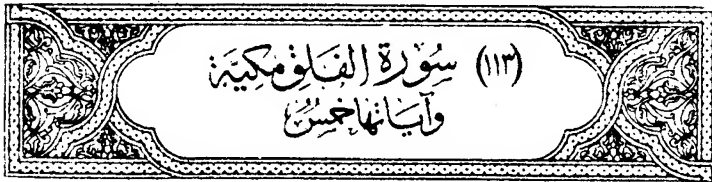 (١١٣) سُورَة الفَلَق مَكِيَّة
وَآيَاتهَا خَمسٌ